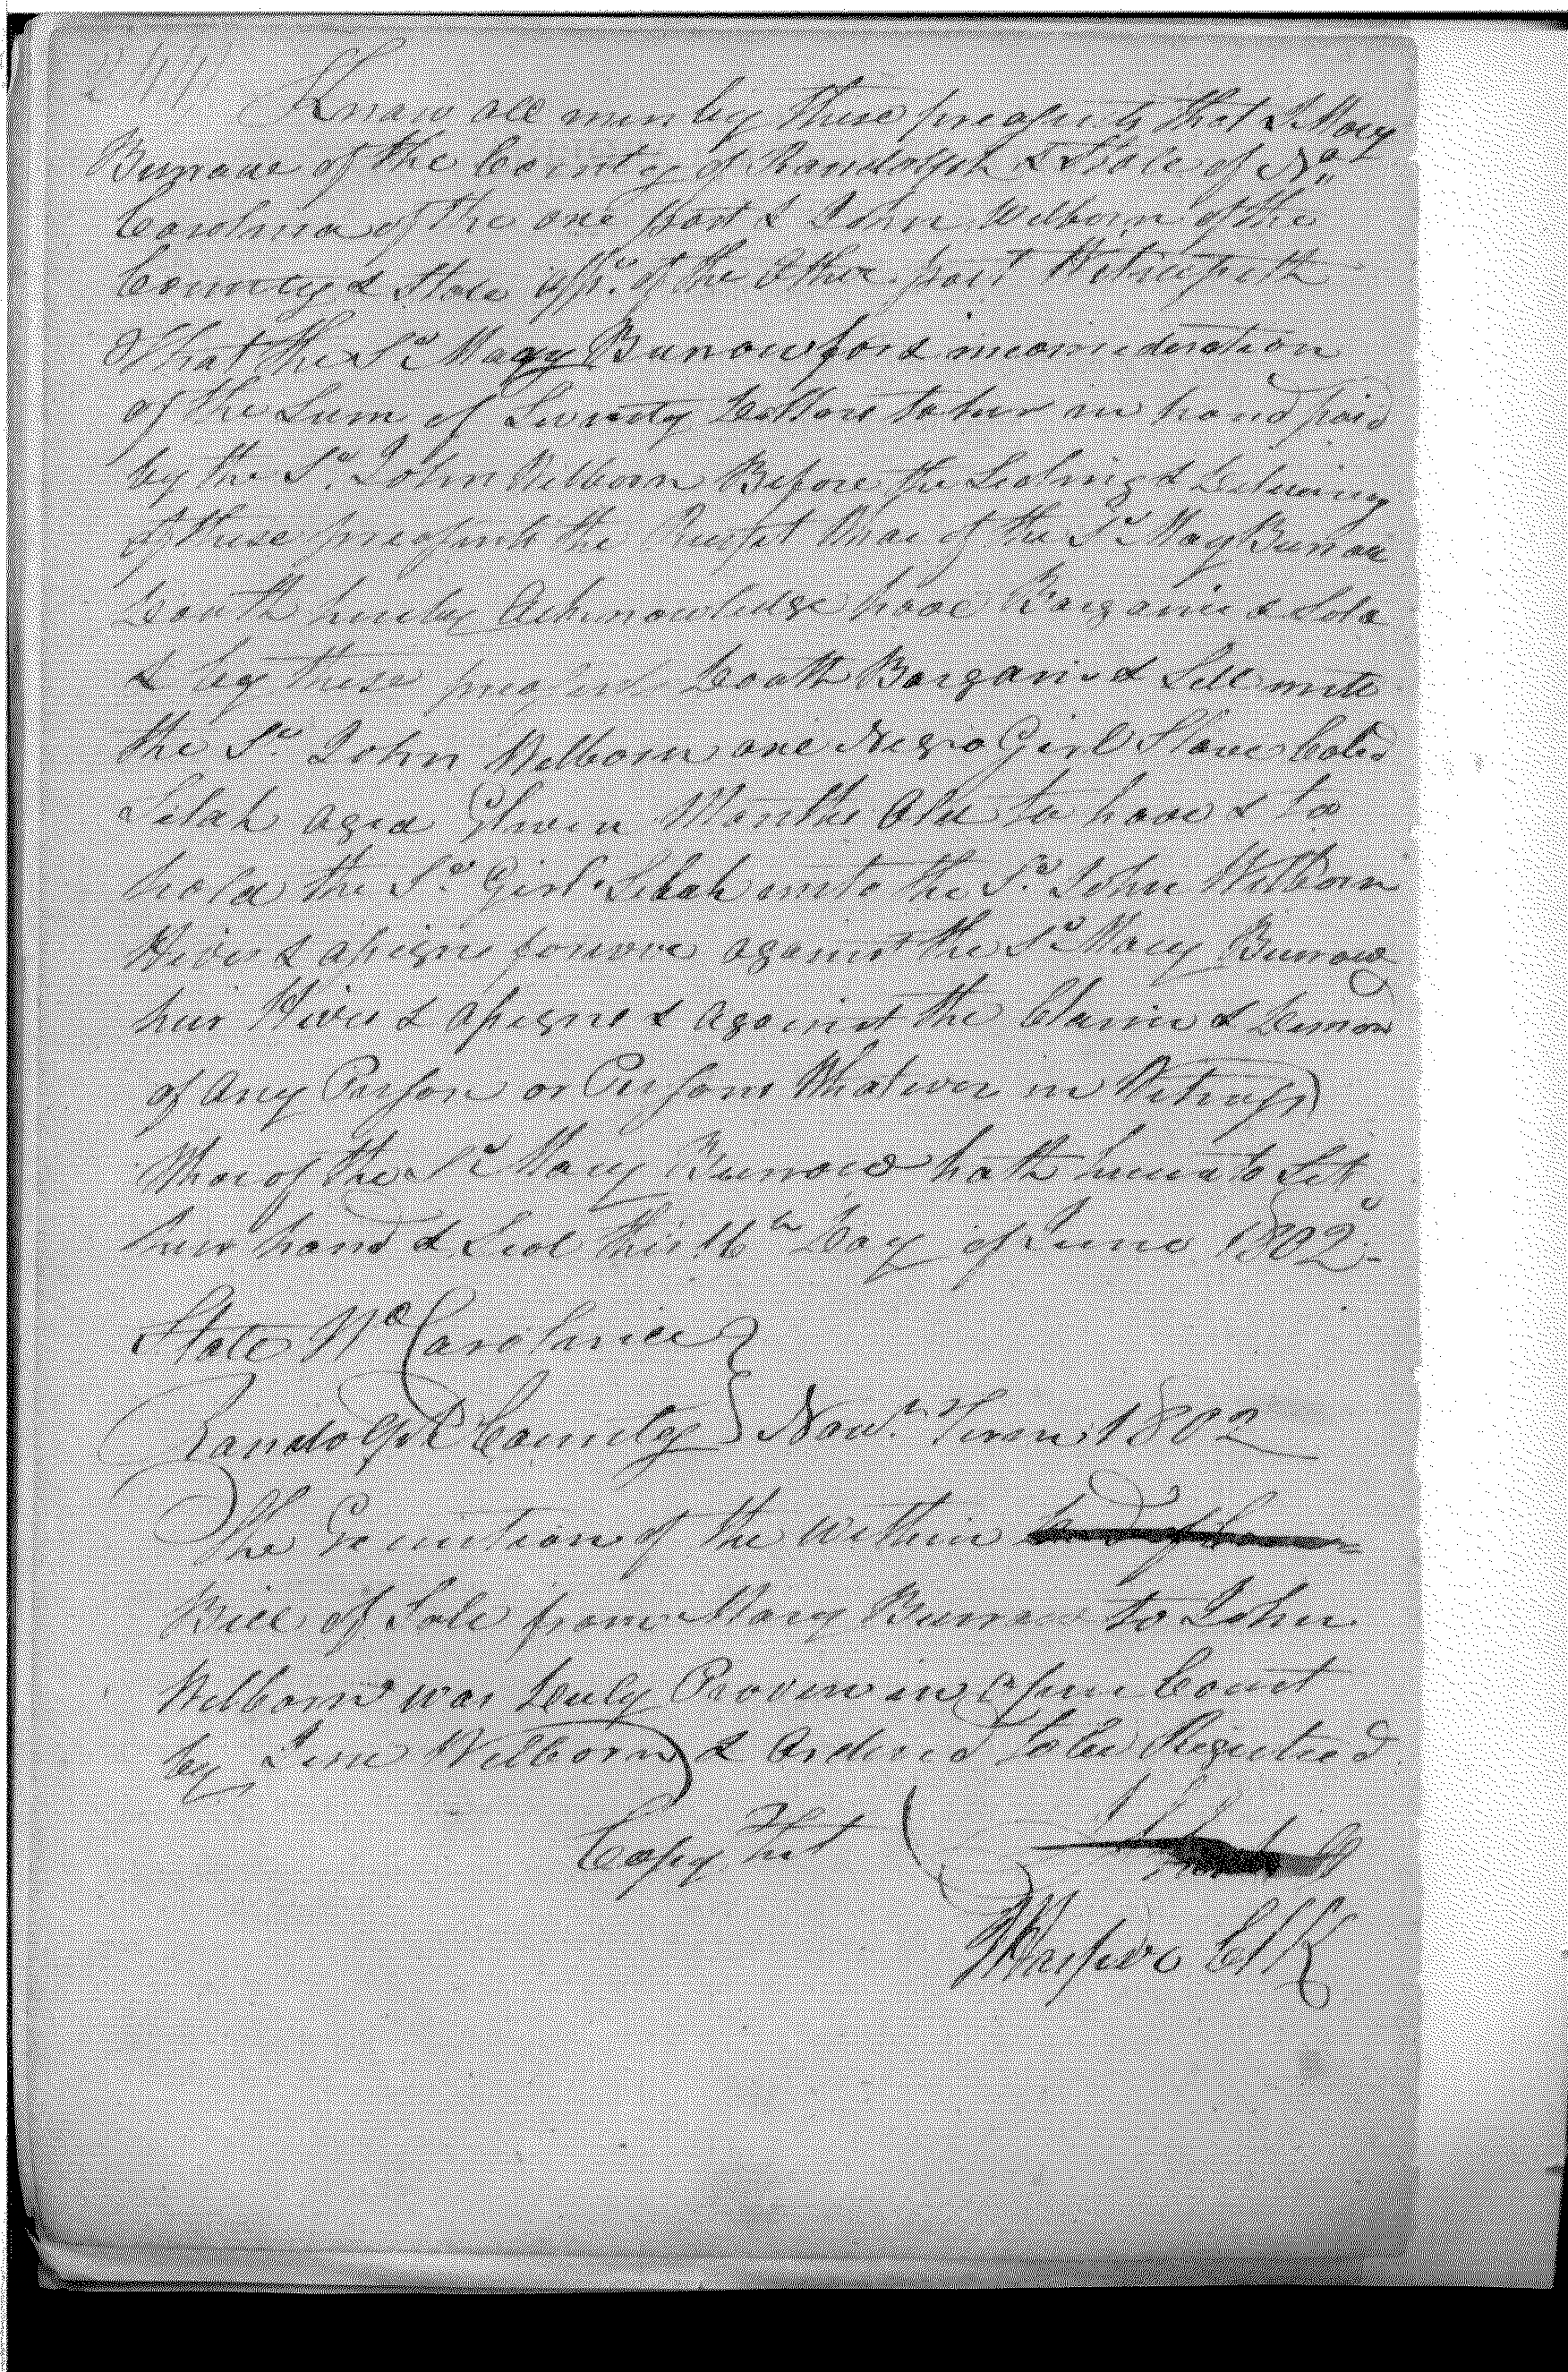 Know all men by these presents that I Mary
Burrow of the County of Randolph & State of No
Carolina of the one part & John Welborn of the
County & State affd. of the Other part Witnesseth
That the Sd Mary Burrow for & inconsideration
of the Sum of Seventy Dollars to hur in hand paid
by the Sd. John Welborn Before the Sealing & Delivering
of these presents the Receipt Whare of the Sd Mary Burrow
Doath hereby Acknowledge have Bargain & Sold
& by these presents Doath Bargain & Sell unto
the Sd John Welborn one Negro Girl Slave Caled
Selah aged Months Old to have & to
hold the Sd Girl Selah unto the Sd John Welborn
Heirs & assigns forever against the Sd Mary Burrow
hur Heirs & assigns & against the Claim & Deman
of Any Person or Persons Whatever in Witness
Whareof the Sd Mary Burrow hath hereunto Set
hur hand & Seal this 16th Day of June 1802
State No Carolina
Randolph County } Novr. Term 1802
The Execution of the within
Bill of Sale from Mary Burrow to John
Welborn was Duly Proven in open Court
by Welborn & Ordered to be Registred
Copy Test
Harper Clk